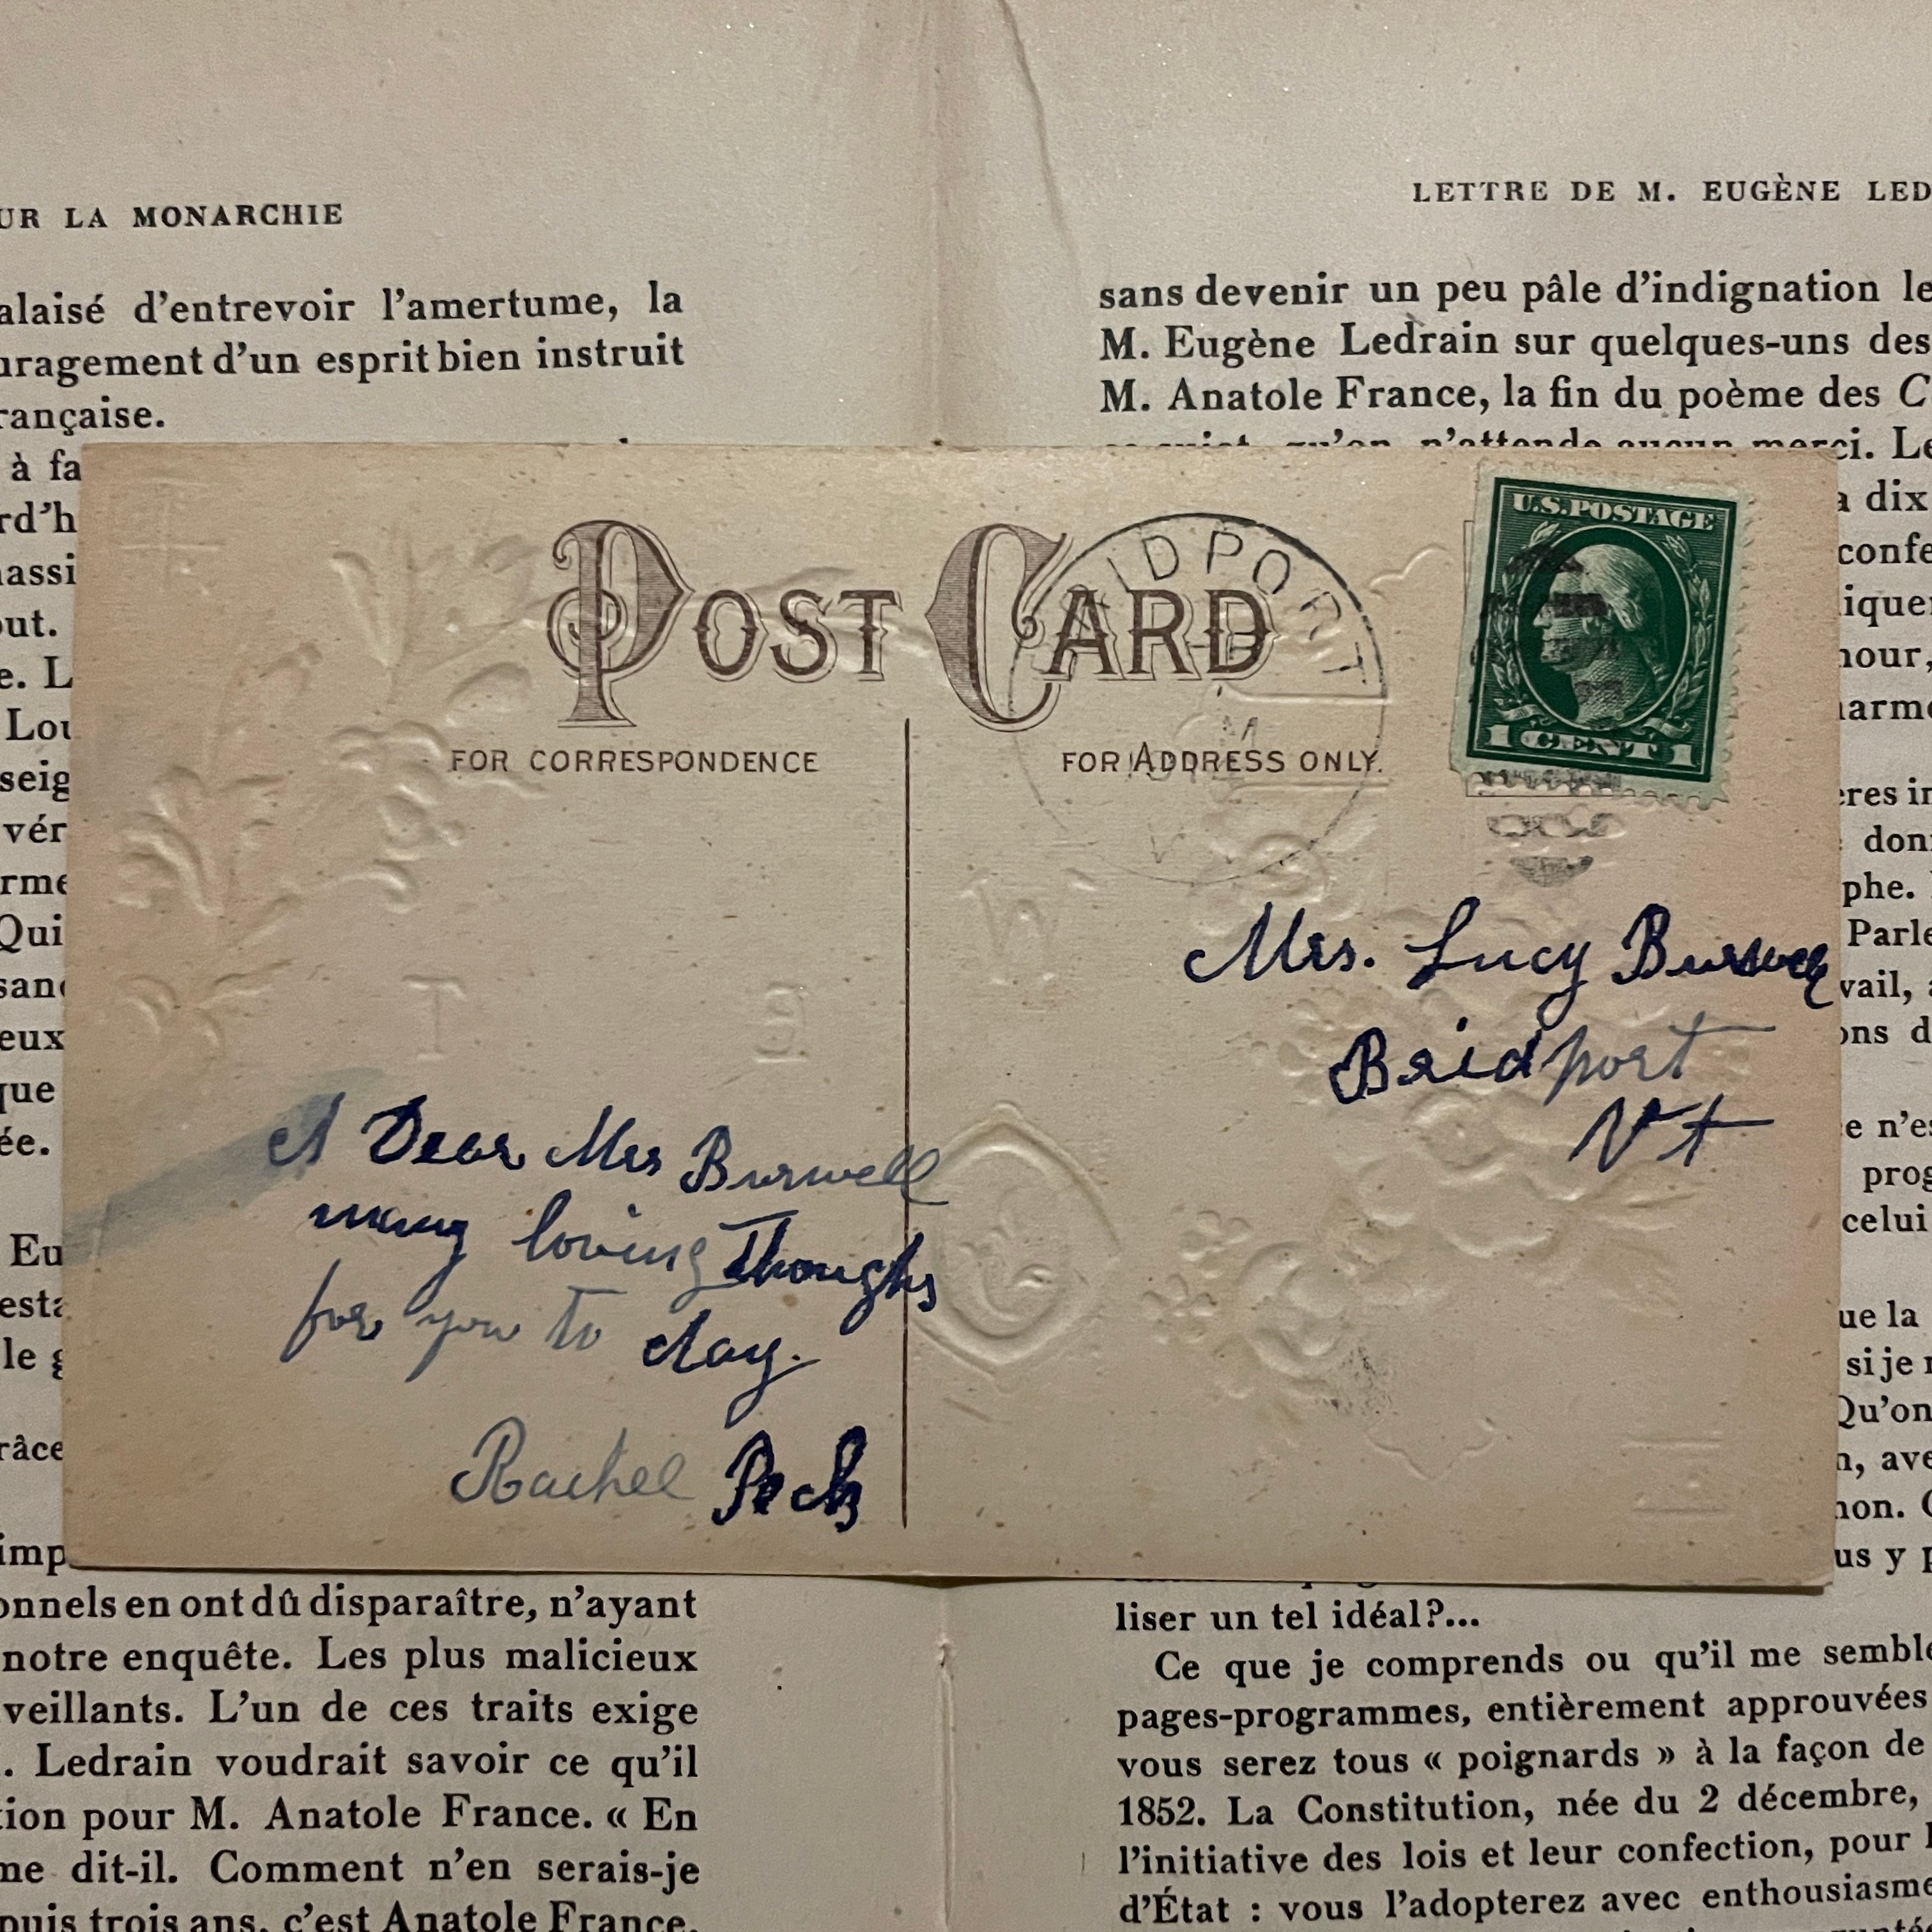 UR LA MONARCHIE
alaisé d'entrevoir l'amertume, la
uragement d'un esprit bien instruit
rançaise.
à fa
rd'h
assi
out.
e. L
Lou
seig
vér
rme
Qui
sand
eux
que
ée.
Eu
esta
le g
râce
imp
onnels en ont dû disparaître, n'ayant
notre enquête. Les plus malicieux
veillants. L'un de ces traits exige
. Ledrain voudrait savoir ce qu'il
tion pour M. Anatole France. « En
me dit-il. Comment n'en serais-je
puis trois ans, c'est Anatole France.
LETTRE DE M. EUGÈNE LED
sans devenir un peu pâle d'indignation le
M. Eugène Ledrain sur quelques-uns des
M. Anatole France, la fin du poème des C
ce sujet, qu'on n'attende aucun merci. Le
a dix
confe
ique
our,
harm
ères in
donn
phe.
Parle
vail, a
ons d
e n'es
prog
celui
ue la
si je n
Qu'on
n, ave
non. C
us y p
liser un tel idéal?...
Ce que je comprends ou qu'il me semble
pages-programmes, entièrement approuvées
vous serez tous « poignards » à la façon de
1852. La Constitution, née du 2 décembre,
l'initiative des lois et leur confection, pour l
d'État : vous l'adopterez avec enthousiasme
POST CARD
FOR CORRESPONDENCE
FOR ADDRESS ONLY.
IDPORT
U.S. POSTAGE
1 CENT 1
Mrs. Lucy Burwell
Bridport
Vt
A Dear Mrs Burwell
many loving Thoughs
for you to day.
Rachel Peck